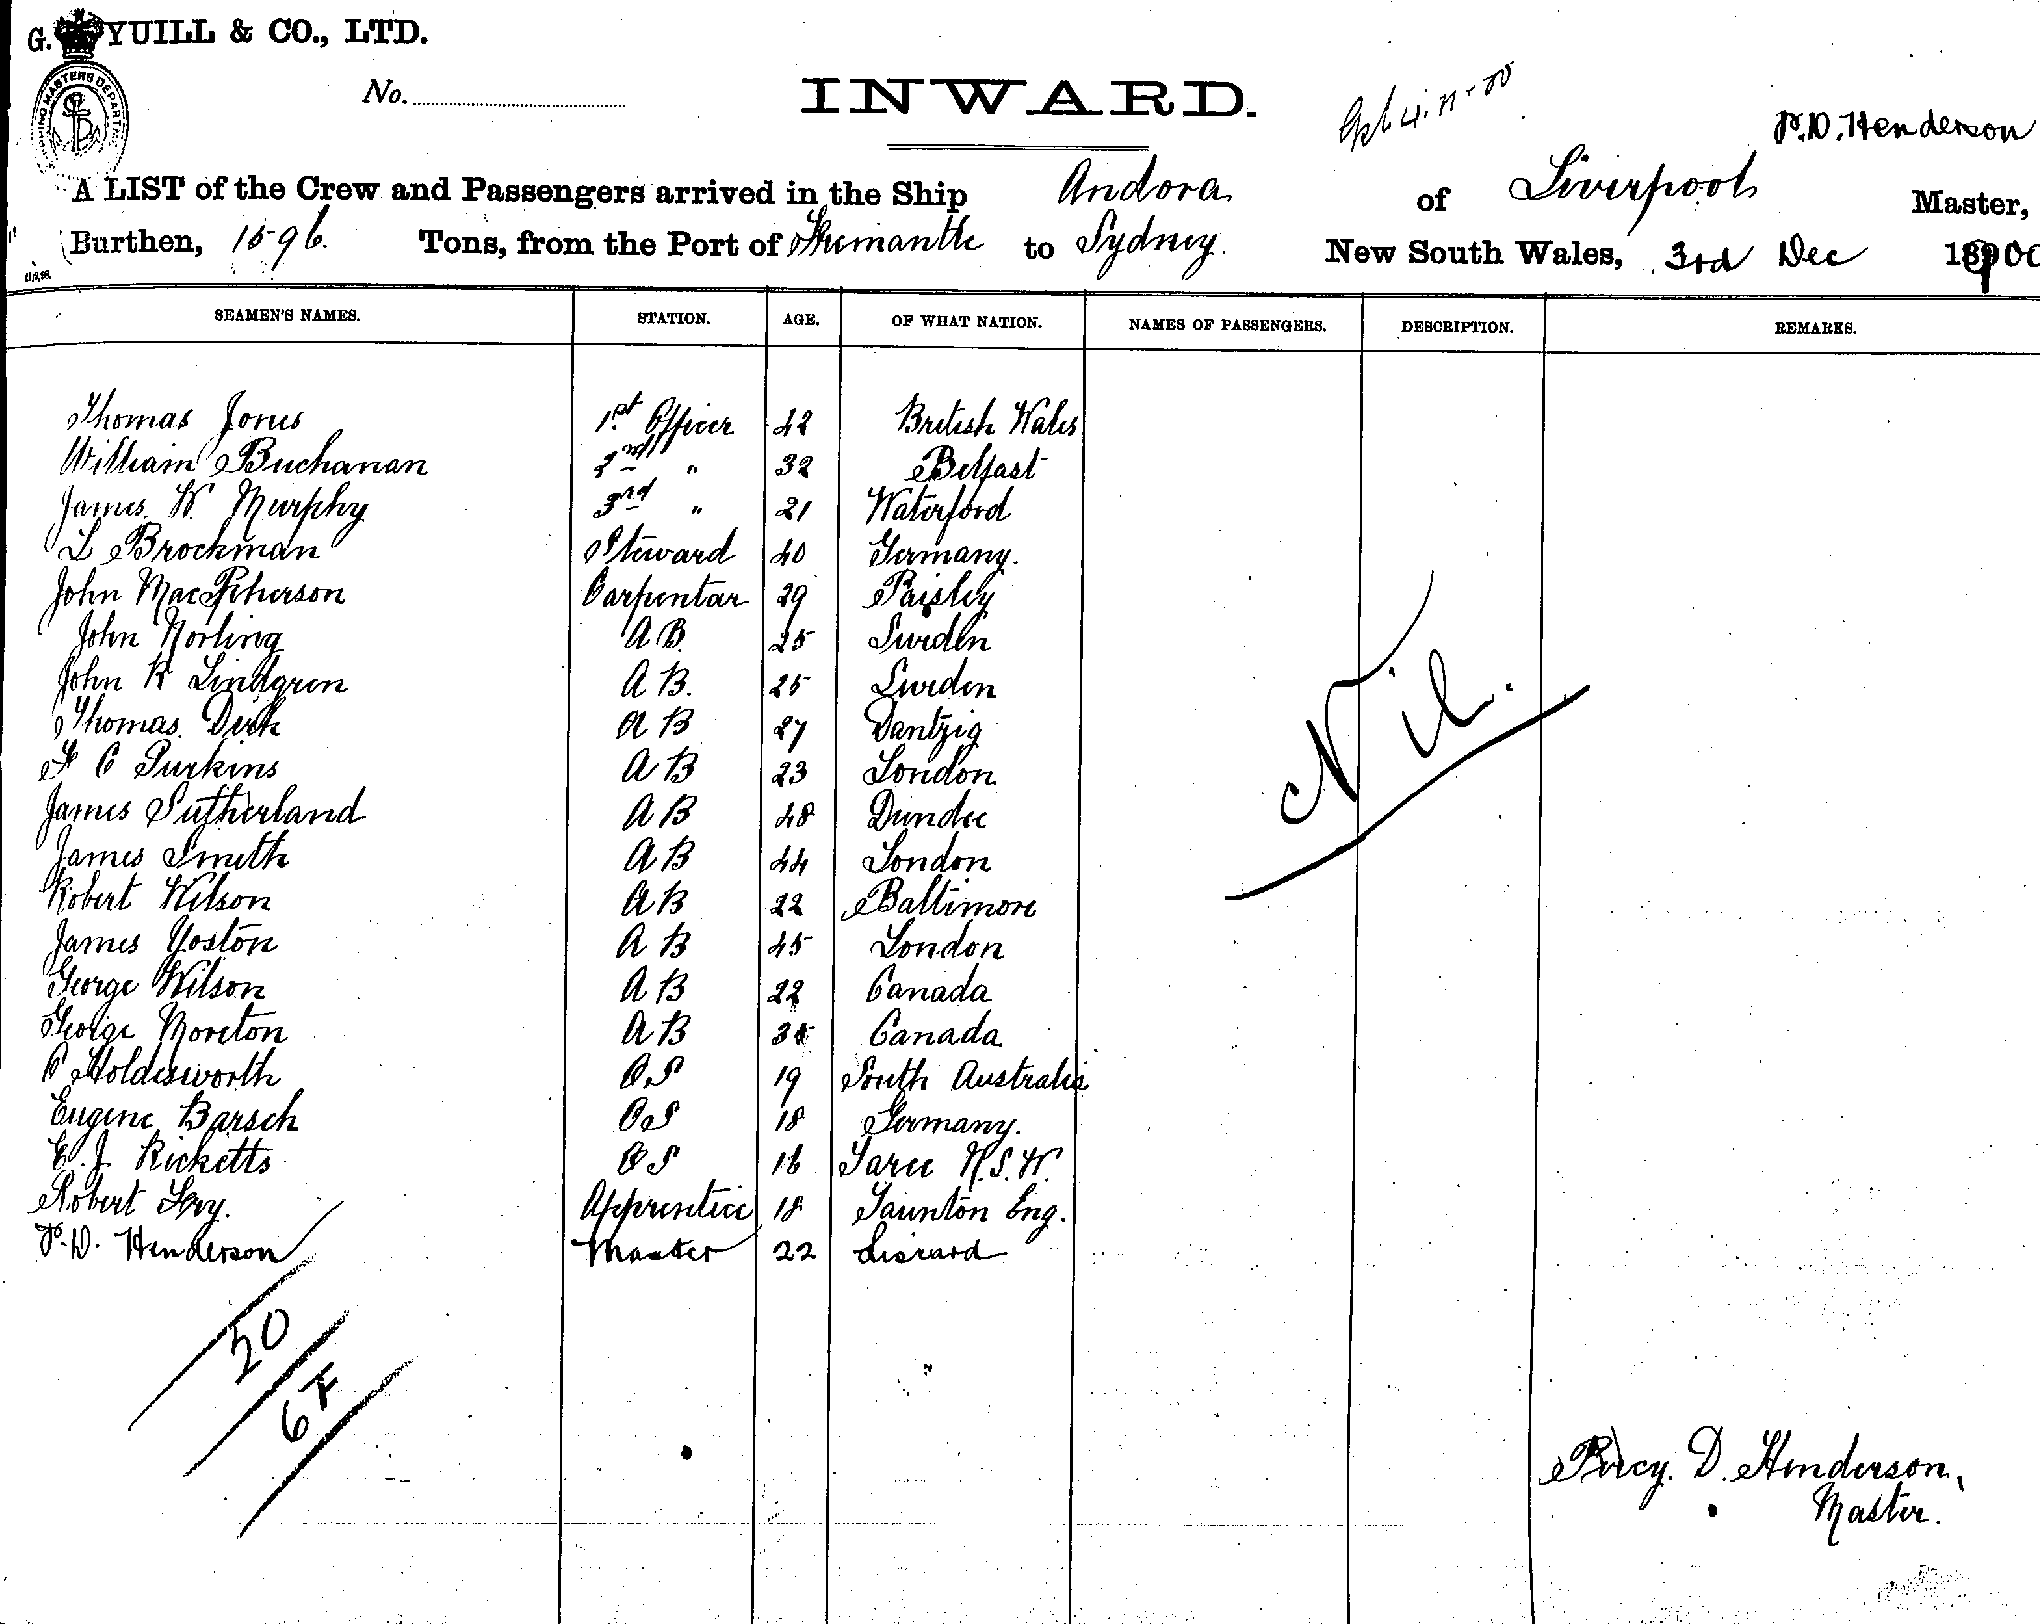 G. YUILL & CO., LTD.
SHIPPING MASTERS DEPARTMENT
No.
INWARD.
P.D. Henderson
A LIST of the Crew and Passengers arrived in the Ship Andora of Liverpool Master,
Burthen, 1596. Tons, from the Port of Fremantle to Sydney. New South Wales, 3rd Dec 1900
SEAMEN'S NAMES. STATION. AGE. OF WHAT NATION. NAMES OF PASSENGERS. DESCRIPTION. REMARKS.
Thomas Jones 1st Officer 42 British Wales
William Buchanan 2nd " 32 Belfast
James. W. Murphy 3rd " 21 Waterford
L Brockman Steward 40 Germany.
John MacPherson Carpentar 29 Paisley
John Norling A B. 25 Sweden
John R Lindgren A B. 25 Sweden
Thomas. Dick A B 27 Dantzig
F C Purkins A B 23 London
James Sutherland A B 48 Dundee
James Smith A B 44 London
Robert Wilson A B 22 Baltimore
James Yoston A B 45 London
George Wilson A B 22 Canada
George Moreton A B Canada
C Holdesworth O.S 19 South Australia
Eugene Barsch O S 18 Germany.
E. J. Ricketts O S 16 Taree N.S.W.
Robert Apprentice 18 Taunton Eng.
P.D. Henderson Master 22 Liscard
Nil.
20
6 F
Percy. D. Henderson,
Master.